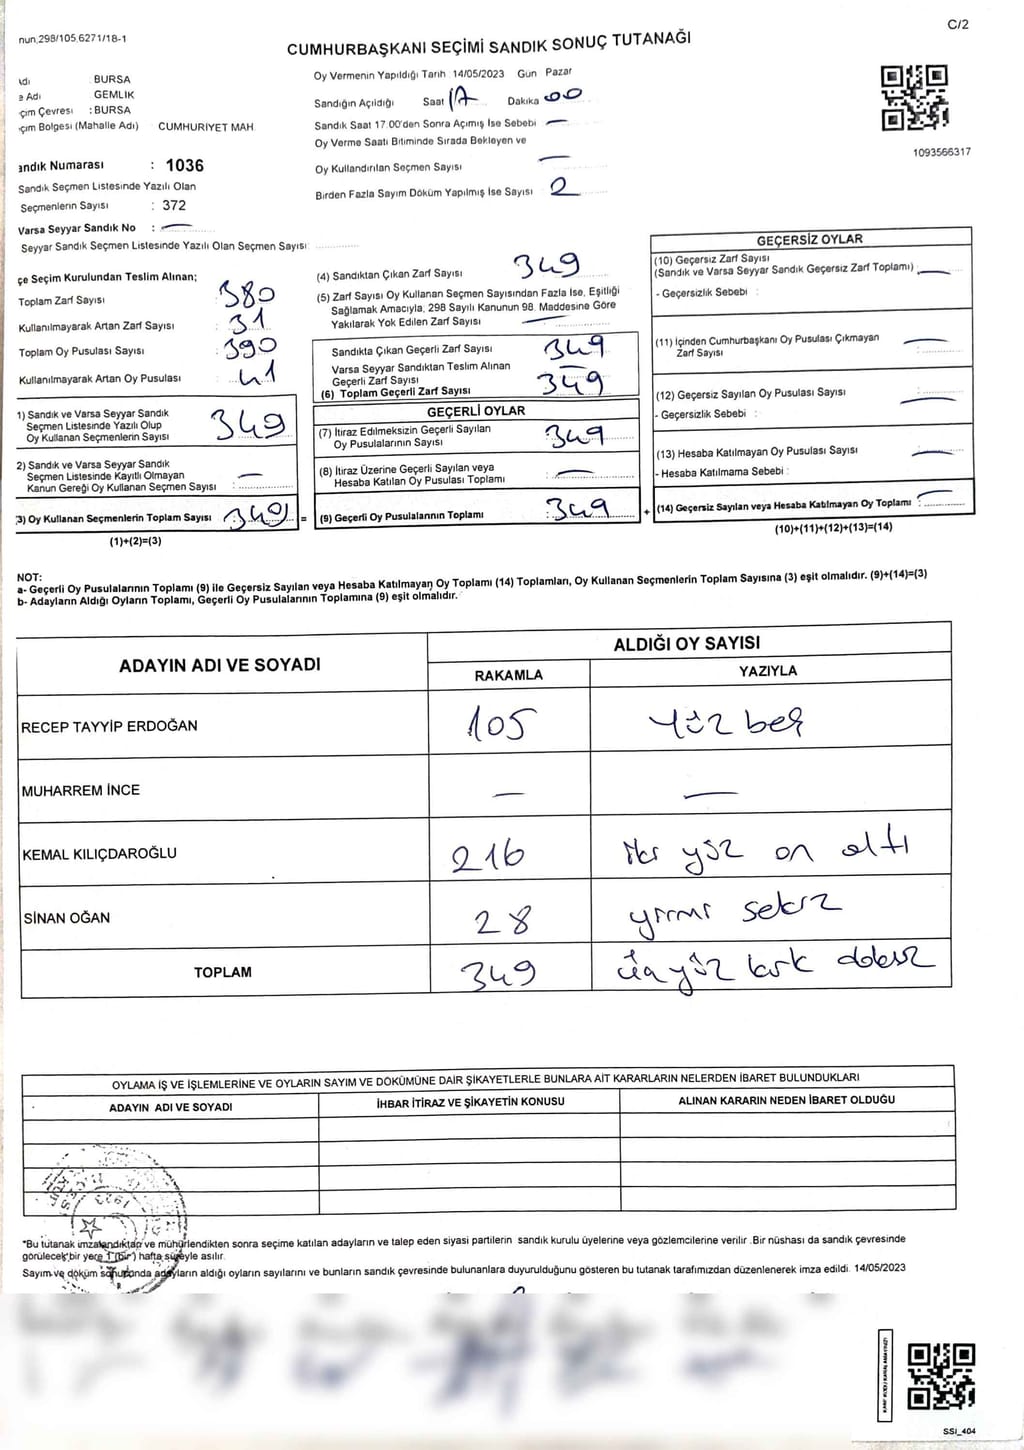 nun.298/105,6271/18-1
C/2
CUMHURBAŞKANI SEÇİMİ SANDIK SONUÇ TUTANAĞI
BURSA
Adı GEMLİK
çim Çevresi : BURSA
çim Bölgesi (Mahalle Adı) CUMHURİYET MAH
andık Numarası : 1036
Sandık Seçmen Listesinde Yazılı Olan
Seçmenlerin Sayısı : 372
Varsa Seyyar Sandık No : —
Seyyar Sandık Seçmen Listesinde Yazılı Olan Seçmen Sayısı:
Oy Vermenin Yapıldığı Tarih 14/05/2023 Gün Pazar
Sandığın Açıldığı Saat 17 Dakika 00
Sandık Saat 17.00'den Sonra Açımış İse Sebebi —
Oy Verme Saati Bitiminde Sırada Bekleyen ve
Oy Kullandırılan Seçmen Sayısı —
Birden Fazla Sayım Döküm Yapılmış İse Sayısı 2
1093566317
çe Seçim Kurulundan Teslim Alınan;
Toplam Zarf Sayısı : 380
Kullanılmayarak Artan Zarf Sayısı : 31
Toplam Oy Pusulası Sayısı : 390
Kullanılmayarak Artan Oy Pusulası : 41
1) Sandık ve Varsa Seyyar Sandık
Seçmen Listesinde Yazılı Olup
Oy Kullanan Seçmenlerin Sayısı 349
2) Sandık ve Varsa Seyyar Sandık
Seçmen Listesinde Kayıtlı Olmayan
Kanun Gereği Oy Kullanan Seçmen Sayısı : —
3) Oy Kullanan Seçmenlerin Toplam Sayısı : 349 =
(1)+(2)=(3)
(4) Sandıktan Çıkan Zarf Sayısı 349
(5) Zarf Sayısı Oy Kullanan Seçmen Sayısından Fazla İse, Eşitliği
Sağlamak Amacıyla, 298 Sayılı Kanunun 98. Maddesine Göre
Yakılarak Yok Edilen Zarf Sayısı —
Sandıkta Çıkan Geçerli Zarf Sayısı 349
Varsa Seyyar Sandıktan Teslim Alınan
Geçerli Zarf Sayısı —
(6) Toplam Geçerli Zarf Sayısı 349
GEÇERLİ OYLAR
(7) İtiraz Edilmeksizin Geçerli Sayılan
Oy Pusulalarının Sayısı 349
(8) İtiraz Üzerine Geçerli Sayılan veya
Hesaba Katılan Oy Pusulası Toplamı : —
(9) Geçerli Oy Pusulalarının Toplamı : 349 +
GEÇERSİZ OYLAR
(10) Geçersiz Zarf Sayısı
(Sandık ve Varsa Seyyar Sandık Geçersiz Zarf Toplamı) —
- Geçersizlik Sebebi :
(11) İçinden Cumhurbaşkanı Oy Pusulası Çıkmayan
Zarf Sayısı : —
(12) Geçersiz Sayılan Oy Pusulası Sayısı : —
- Geçersizlik Sebebi :
(13) Hesaba Katılmayan Oy Pusulası Sayısı : —
- Hesaba Katılmama Sebebi :
(14) Geçersiz Sayılan veya Hesaba Katılmayan Oy Toplamı : —
(10)+(11)+(12)+(13)=(14)
NOT:
a- Geçerli Oy Pusulalarının Toplamı (9) ile Geçersiz Sayılan veya Hesaba Katılmayan Oy Toplamı (14) Toplamları, Oy Kullanan Seçmenlerin Toplam Sayısına (3) eşit olmalıdır. (9)+(14)=(3)
b- Adayların Aldığı Oyların Toplamı, Geçerli Oy Pusulalarının Toplamına (9) eşit olmalıdır.
ADAYIN ADI VE SOYADI ALDIĞI OY SAYISI
RAKAMLA YAZIYLA
RECEP TAYYİP ERDOĞAN 105 Yüz beş
MUHARREM İNCE — —
KEMAL KILIÇDAROĞLU 216 iki yüz on altı
SİNAN OĞAN 28 yirmi sekiz
TOPLAM 349 üç yüz kırk dokuz
OYLAMA İŞ VE İŞLEMLERİNE VE OYLARIN SAYIM VE DÖKÜMÜNE DAİR ŞİKAYETLERLE BUNLARA AİT KARARLARIN NELERDEN İBARET BULUNDUKLARI
ADAYIN ADI VE SOYADI İHBAR İTİRAZ VE ŞİKAYETİN KONUSU ALINAN KARARIN NEDEN İBARET OLDUĞU
*Bu tutanak imzalandıktan ve mühürlendikten sonra seçime katılan adayların ve talep eden siyasi partilerin sandık kurulu üyelerine veya gözlemcilerine verilir .Bir nüshası da sandık çevresinde
görülecek bir yere 1 (bir) hafta süreyle asılır.
Sayım ve döküm sonucunda adayların aldığı oyların sayılarını ve bunların sandık çevresinde bulunanlara duyurulduğunu gösteren bu tutanak tarafımızdan düzenlenerek imza edildi. 14/05/2023
SSI_404